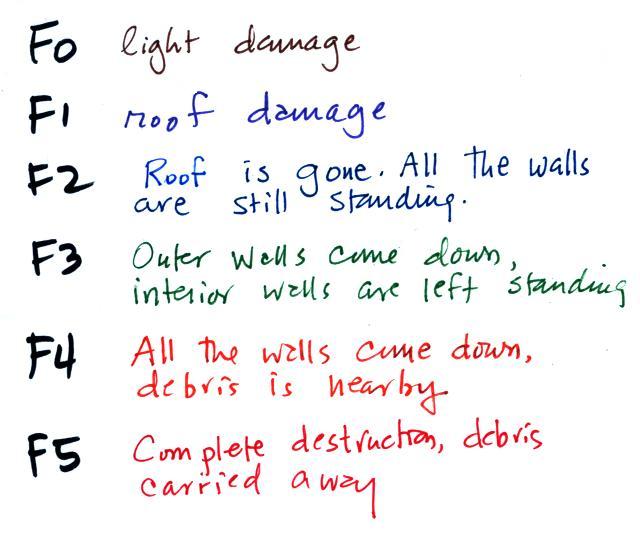 F0 light damage
F1 roof damage
F2 Roof is gone. All the walls
are still standing.
F3 Outer walls come down,
interior walls are left standing
F4 All the walls come down,
debris is nearby
F5 Complete destruction, debris
carried away